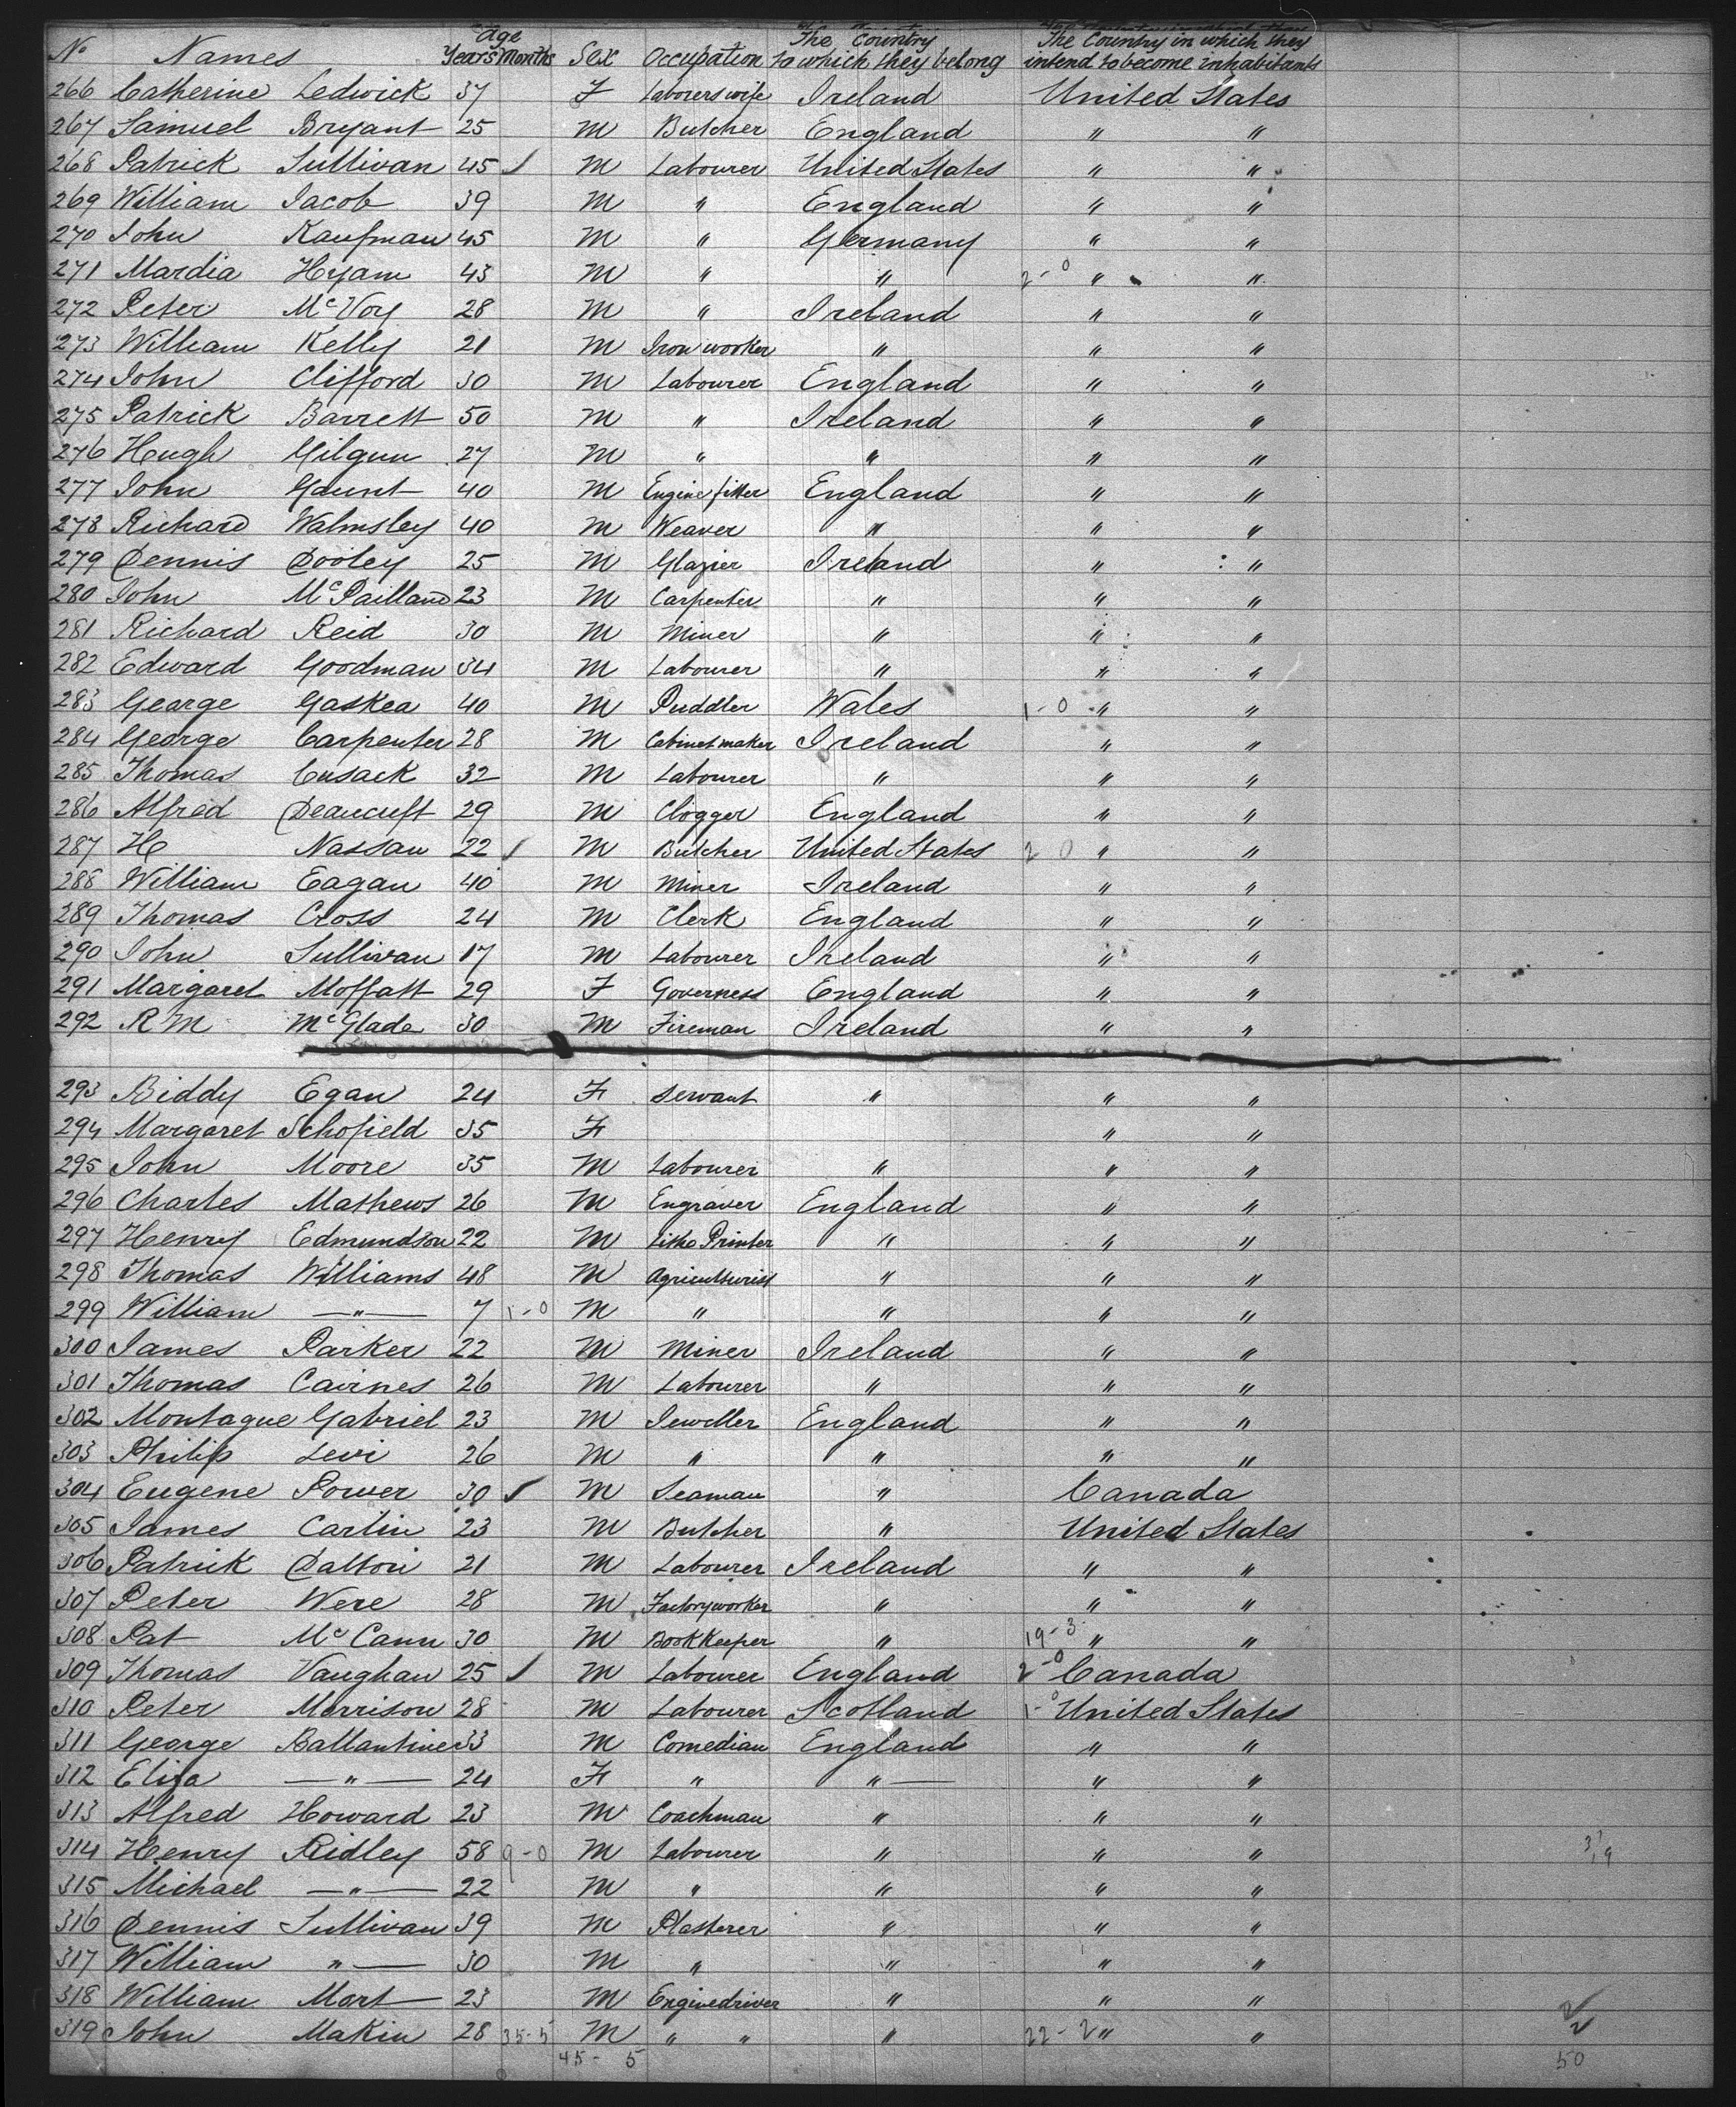 Age The Country The Country in which they
No Names Years Months Sex Occupation to which they belong intend to become inhabitants
266 Catherine Ledwick 37 F Laborers wife Ireland United States
267 Samuel Bryant 25 M Butcher England " "
268 Patrick Sullivan 45 ✓ M Labourer United States " "
269 William Jacob 39 M " England " "
270 John Kaufman 45 M " Germany " "
271 Mardia Hyam 43 M " " 2-0 " "
272 Peter McVoy 28 M " Ireland " "
273 William Kelly 21 M Iron worker " " "
274 John Clifford 30 M Labourer England " "
275 Patrick Barrett 50 M " Ireland " "
276 Hugh Gilgun 27 M " " " "
277 John Gaunt 40 M Engine fitter England " "
278 Richard Walmsley 40 M Weaver " " "
279 Dennis Dooley 25 M Glazier Ireland " "
280 John McPailland 23 M Carpenter " " "
281 Richard Reid 30 M Miner " " "
282 Edward Goodman 34 M Labourer " " "
283 George Gaskea 40 M Puddler Wales 1-0 " "
284 George Carpenter 28 M Cabinet maker Ireland " "
285 Thomas Cusack 32 M Labourer " " "
286 Alfred Deaucuft 29 M Clogger England " "
287 H Nassau 22 ✓ M Butcher United States 2 0 " "
288 William Eagan 40 M Miner Ireland " "
289 Thomas Cross 24 M Clerk England " "
290 John Sullivan 17 M Labourer Ireland " "
291 Margaret Moffatt 29 F Governess England " "
292 R M McGlade 30 M Fireman Ireland " "
293 Biddy Egan 24 F Servant " " "
294 Margaret Schofield 35 F " "
295 John Moore 35 M Labourer " " "
296 Charles Mathews 26 M Engraver England " "
297 Henry Edmundson 22 M Litho Printer " " "
298 Thomas Williams 48 M Agriculturist " " "
299 William —"— 7 1-0 M " " " "
300 James Parker 22 M Miner Ireland " "
301 Thomas Cairnes 26 M Labourer " " "
302 Montague Gabriel 23 M Jeweller England " "
303 Philip Levi 26 M " " " "
304 Eugene Power 30 ✓ M Seaman " Canada
305 James Carlin 23 M Butcher " United States
306 Patrick Dalton 21 M Labourer Ireland " "
307 Peter Were 28 M Factory worker " " "
308 Pat McCann 30 M Book Keeper " 19-3 " "
309 Thomas Vaughan 25 ✓ M Labourer England 2-0 Canada
310 Peter Morrison 28 M Labourer Scotland 1-0 United States
311 George Ballantine 33 M Comedian England " "
312 Eliza —"— 24 F " "— " "
313 Alfred Howard 23 M Coachman " " "
314 Henry Ridley 58 9-0 M Labourer " " "
315 Michael —"— 22 M " " " "
316 Dennis Sullivan 39 M Plasterer " " "
317 William "— 30 M " " " "
318 William Mort 23 M Enginedriver " " "
319 John Makin 28 35-5 M " " " 22-2 " "
45-5 50